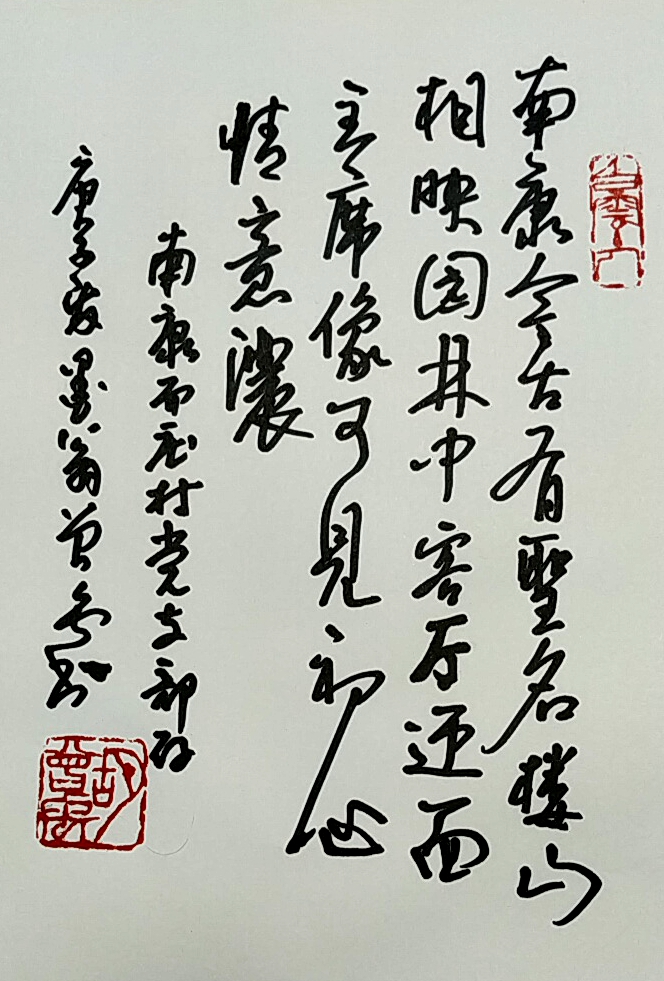 南康今古有聖名楼山
相映园林中客厅迎面
主席像可见初心
情意濃
南康西庄村党支部存
庚子岁墨翁曾